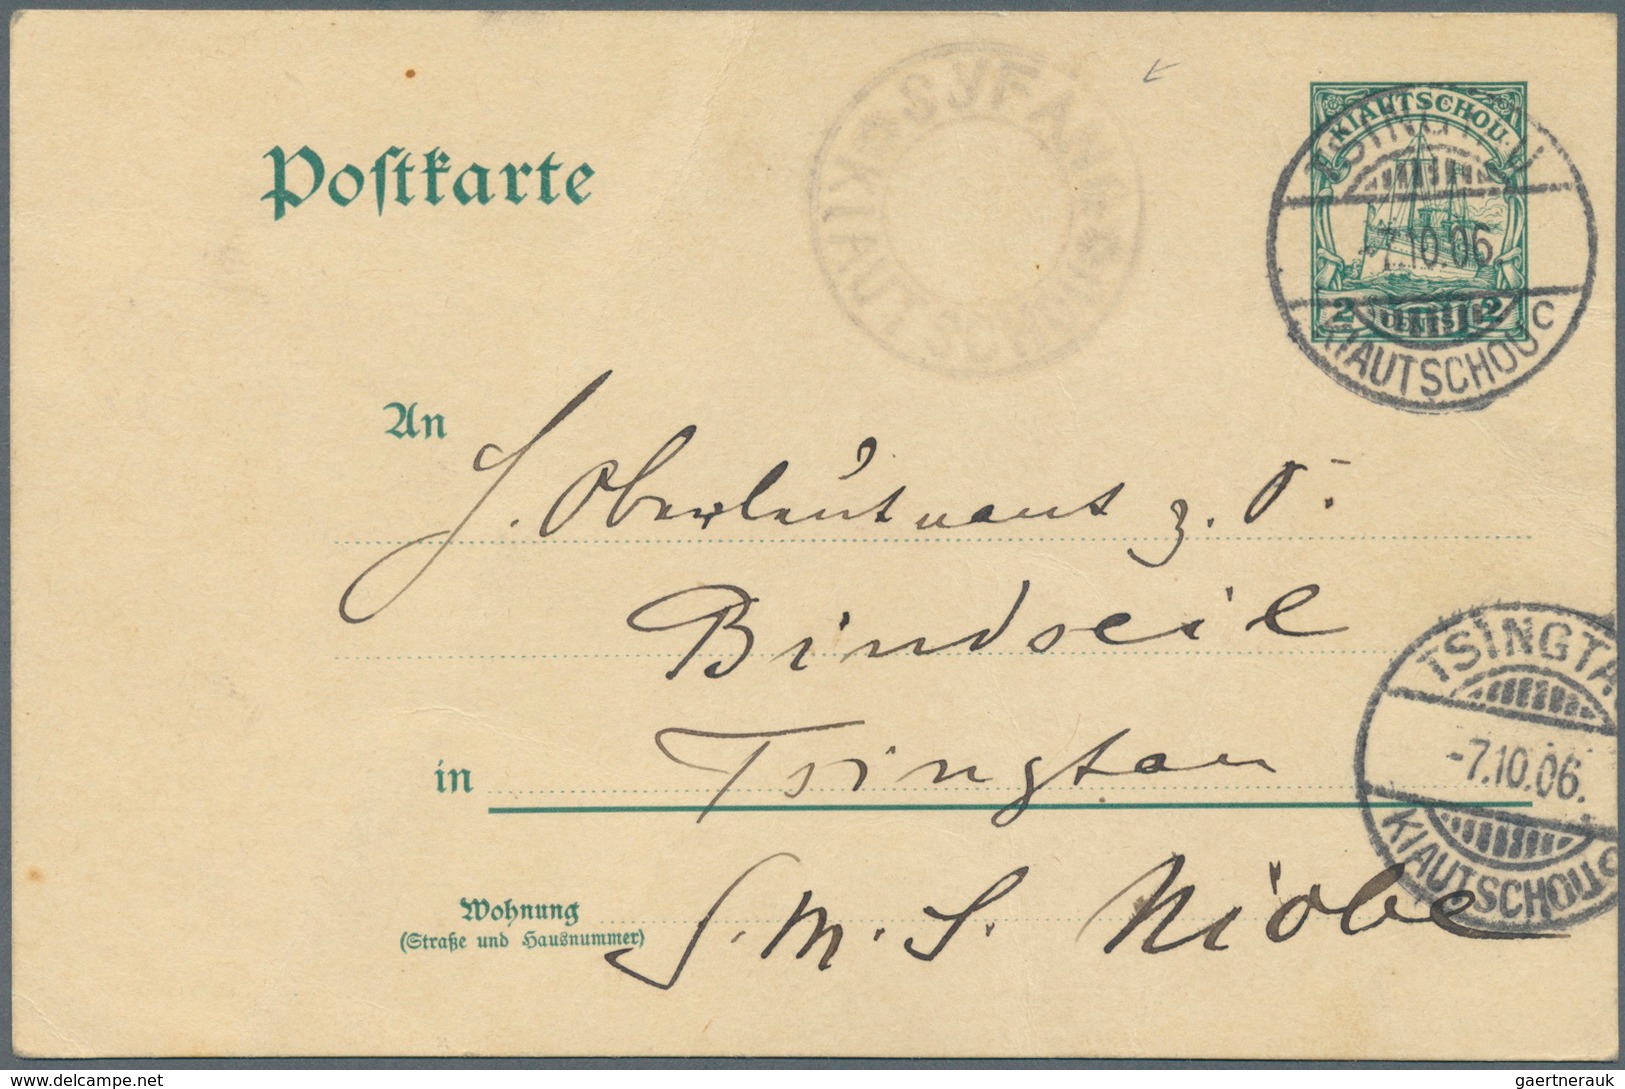 SYFANG
KIAUTSCHOU
KIAUTSCHOU
2 CENTS 2
TSINGTAU
-7.10.06.
KIAUTSCHOU C
Postkarte
An
H. Oberleutnant z. S.
Bindseil
in Tsingtau
Wohnung
(Straße und Hausnummer)
S. M. S. Niobe
TSINGTA
-7.10.06.
KIAUTSCHOU C
www.delcampe.net
gaertnerauk